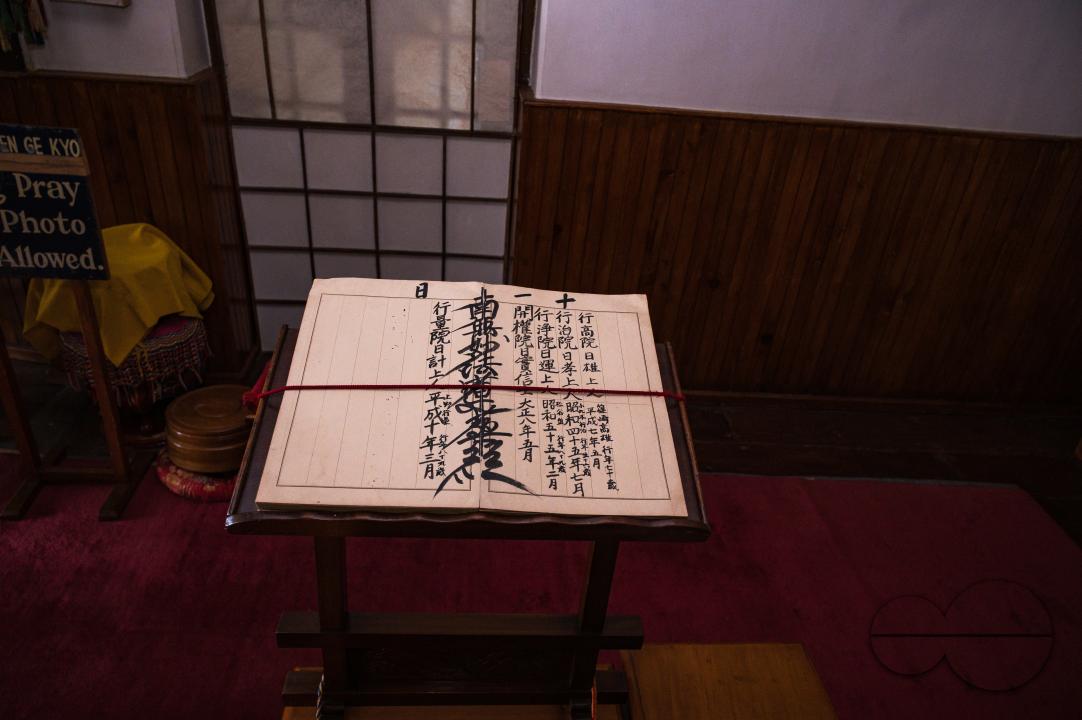 EN GE KYO
Pray
Photo
Allowed.
十一日
行高院日雄上人
篠崎高雄 行年七十歳
平成七年五月
行泊院日孝上人昭和四十五年七月
行浄院日運上人昭和五十五年二月
開權院日實信士大正八年五月
南無妙法蓮華経
行量院日計上人平成十年三月